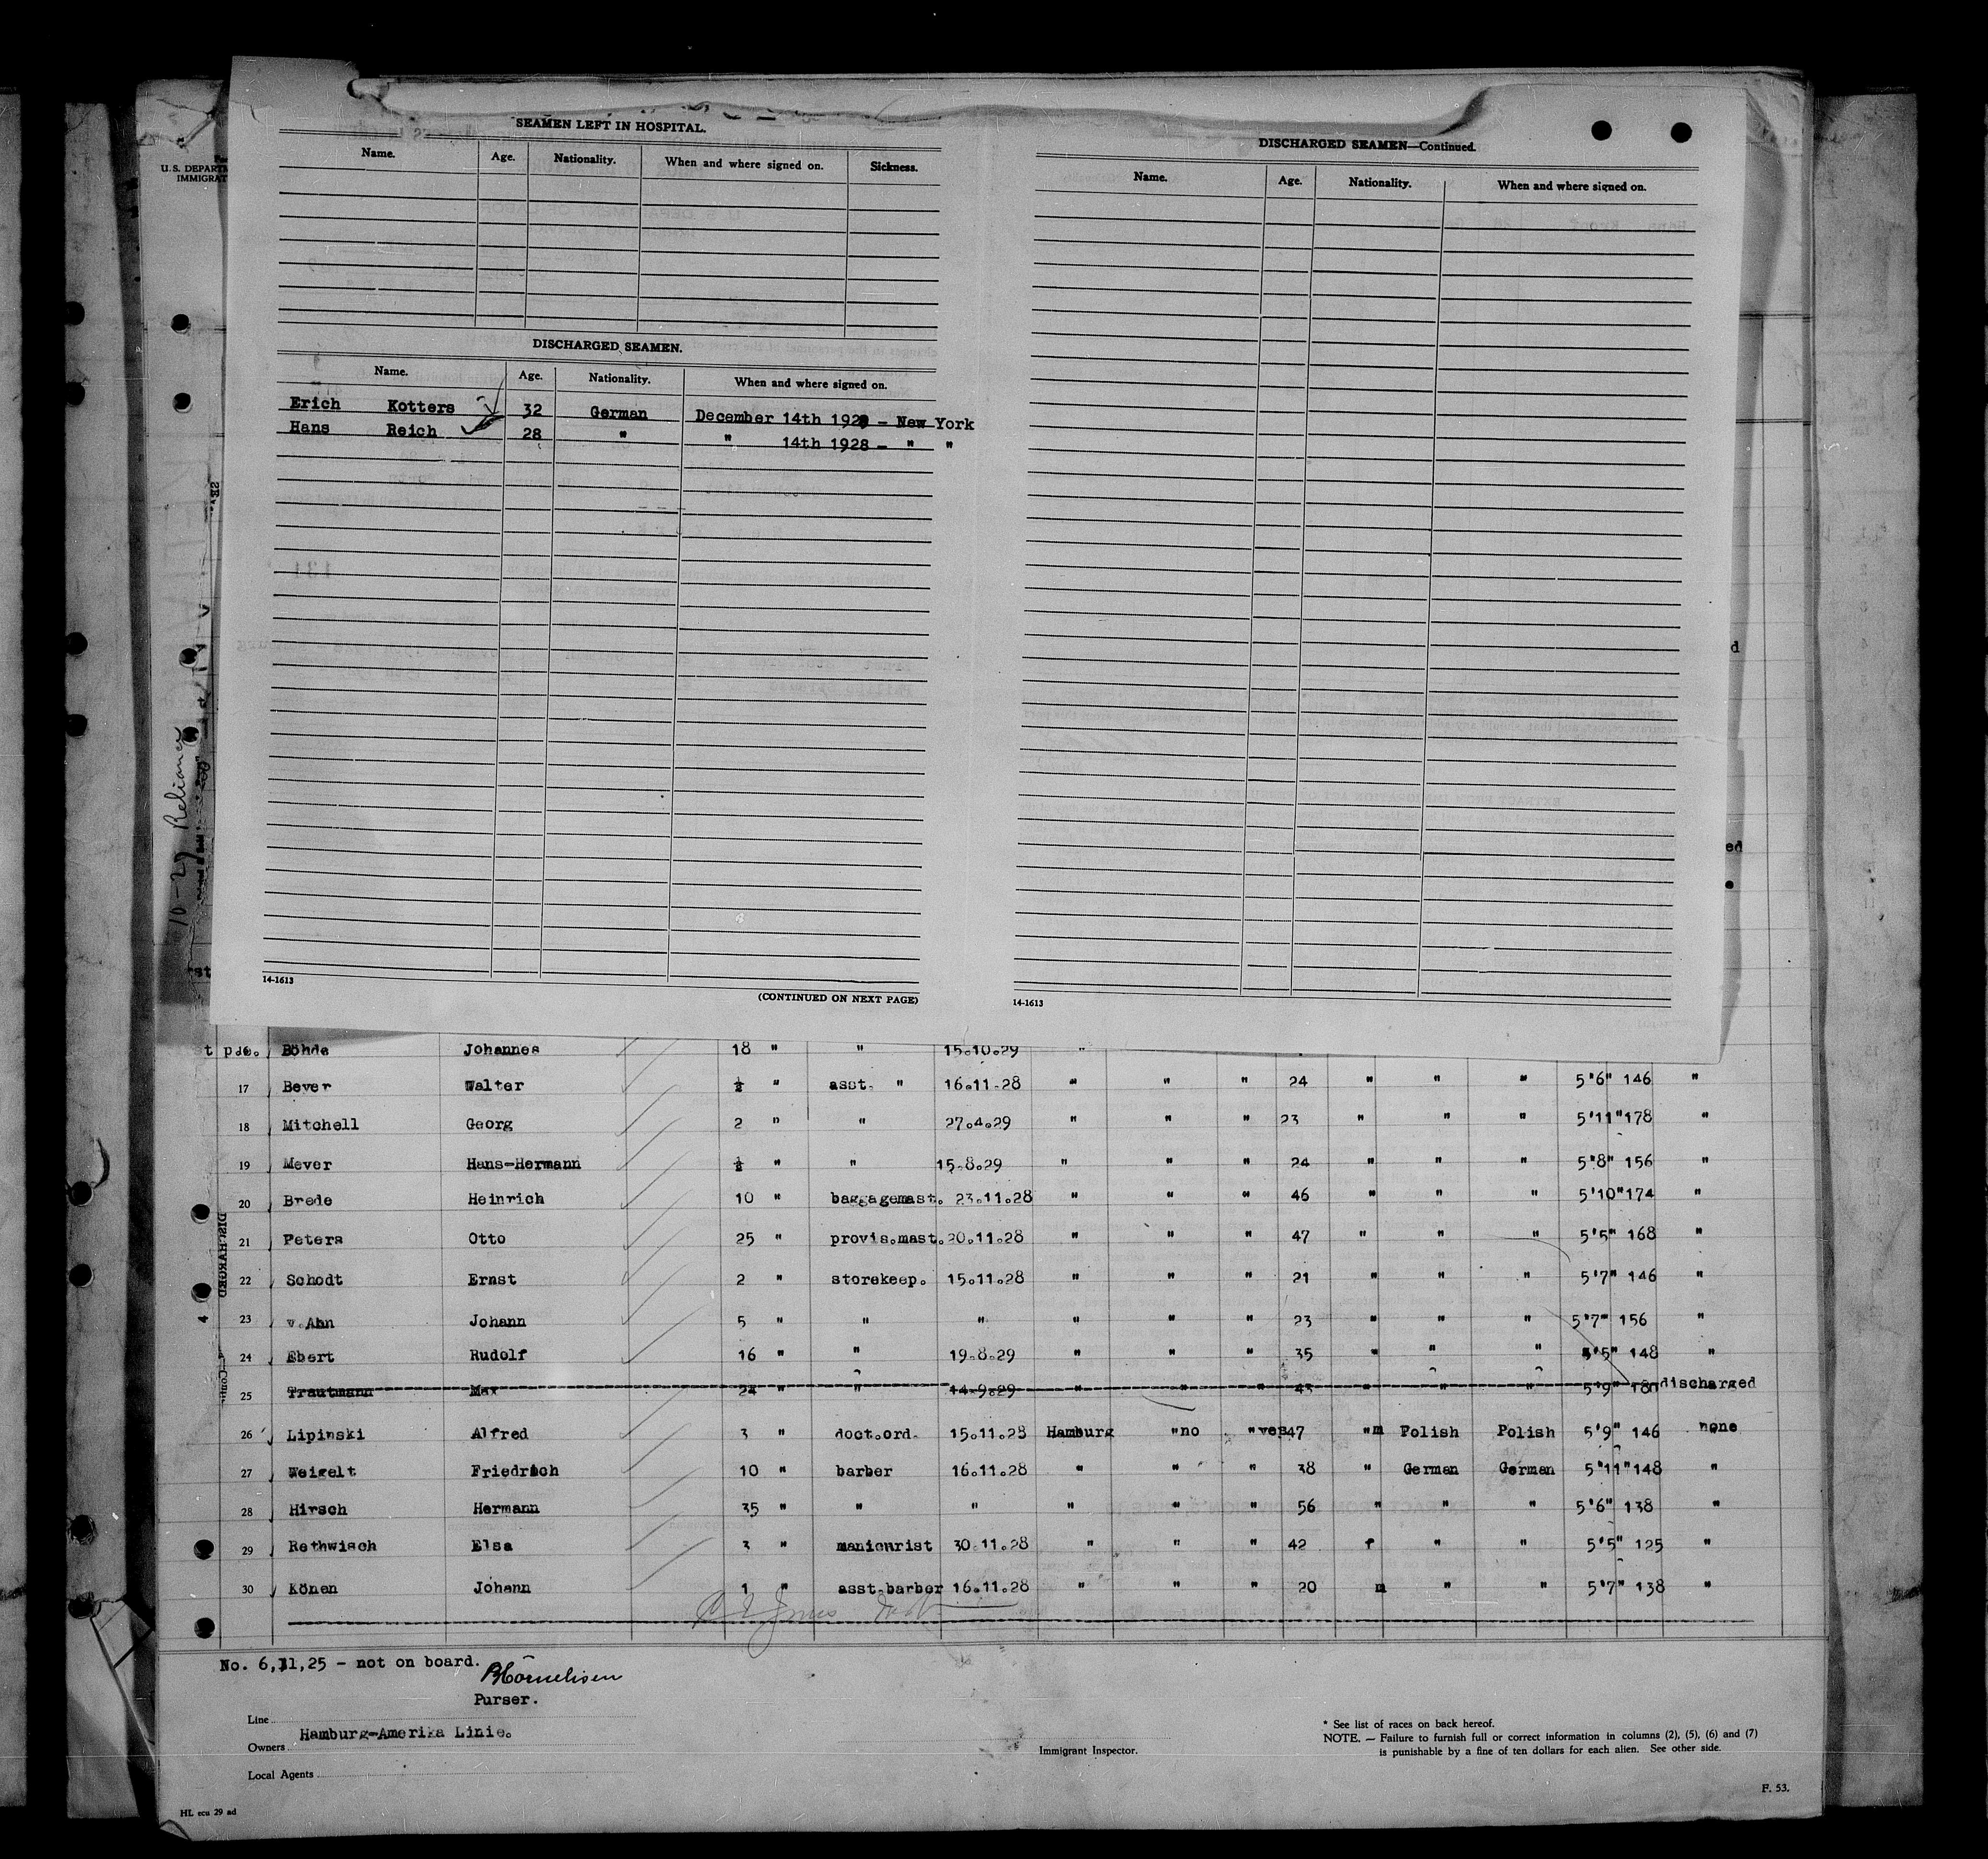 U.S. DEPART
IMMIGRAT
SEAMEN LEFT IN HOSPITAL.
Name. Age. Nationality. When and where signed on. Sickness.
DISCHARGED SEAMEN.
Name. Age. Nationality. When and where signed on.
Erich Kotters 32 German December 14th 1928 - New York
Hans Reich 28 " " 14th 1928 - " "
14-1613
(CONTINUED ON NEXT PAGE)
DISCHARGED SEAMEN—Continued.
Name. Age. Nationality. When and where signed on.
14-1613
10-29 Reliance
Böhde Johannes 18 " " 15.10.29 "
17 Beyer Walter ½ " asst. " 16.11.28 " " " 24 " " " 5'6" 146 "
18 Mitchell Georg 2 " " 27.4.29 " " " 23 " " " 5'11" 178 "
19 Meyer Hans-Hermann ½ " " 15.8.29 " " " 24 " " " 5'8" 156 "
20 Brede Heinrich 10 " baggagemast. 23.11.28 " " " 46 " " " 5'10" 174 "
21 Peters Otto 25 " provis.mast. 20.11.28 " " " 47 " " " 5'5" 168 "
22 Schodt Ernst 2 " storekeep. 15.11.28 " " " 21 " " " 5'7" 146 "
23 v.Ahn Johann 5 " " " " " " 23 " " " 5'7" 156 "
24 Ebert Rudolf 16 " " 19.8.29 " " " 35 " " " 5'5" 148 "
25 Trautmann Max 24 " " 14.9.29 " " " 43 " " " 5'9" 180 discharged
26 Lipinski Alfred 3 " doct.ord. 15.11.28 Hamburg "no "yes 47 "m Polish Polish 5'9" 146 none
27 Weigelt Friedrich 10 " barber 16.11.28 " " " 38 " German German 5'11" 148 "
28 Hirsch Hermann 35 " " " " " " 56 " " " 5'6" 138 "
29 Rethwisch Elsa 3 " manicurist 30.11.28 " " " 42 f " " 5'5" 125 "
30 Könen Johann 1 " asst.barber 16.11.28 " " " 20 m " " 5'7" 138 "
No. 6,11,25 - not on board.
Cornelisen
Purser.
Line
Hamburg-Amerika Linie.
Owners
Local Agents
Immigrant Inspector.
* See list of races on back hereof.
NOTE. — Failure to furnish full or correct information in columns (2), (5), (6) and (7)
is punishable by a fine of ten dollars for each alien. See other side.
F. 53.
HL ecu 29 ad